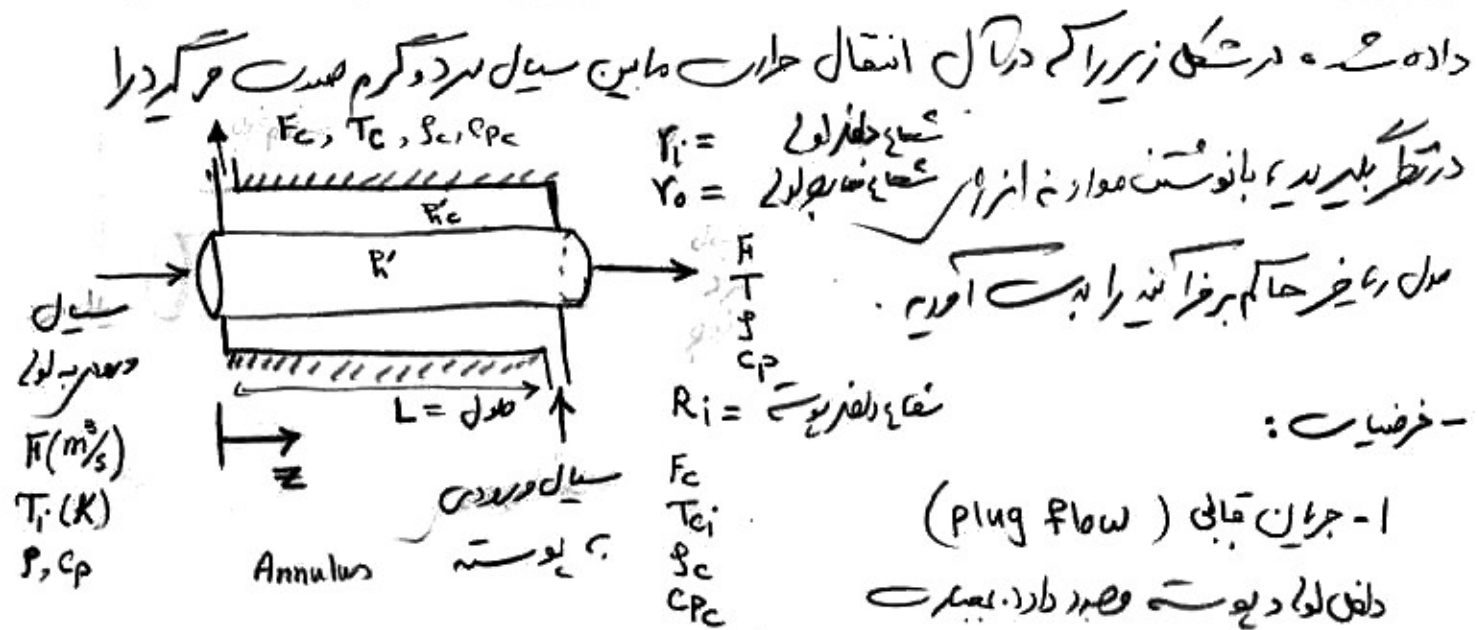 داده شده در شکل زیر را که در آن انتقال حرارت مابین سیال سرد و گرم صورت می گیرد را
در نظر بگیرید، با نوشتن موازنه انرژی
مدل ریاضی حاکم بر فرآیند را بدست آورید.
Fc, Tc, ρc, cpc
ri = شعاع داخلی لوله
ro = شعاع خارجی لوله
h'c
h'
F
T
ρ
cp
سیال
ورودی به لوله
F(m³/s)
Ti(K)
ρ, cp
L = طول
z
Ri = شعاع داخلی پوسته
سیال ورودی
به پوسته
Annulus
Fc
Tci
ρc
cpc
- فرضیات:
1- جریان قالبی (plug flow)
داخل لوله و پوسته وجود دارد. بعبارت